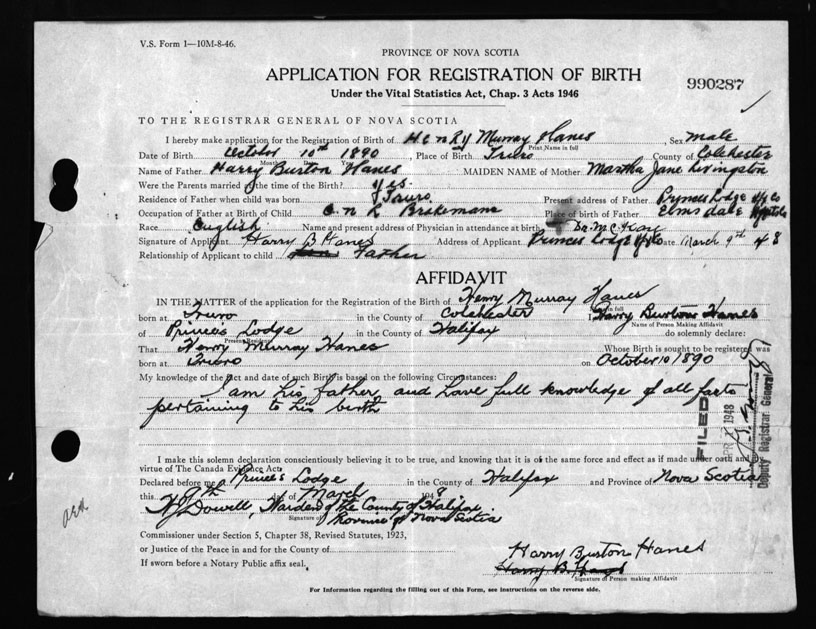 V.S. Form 1—10M-8-46.
PROVINCE OF NOVA SCOTIA
APPLICATION FOR REGISTRATION OF BIRTH
990287
Under the Vital Statistics Act, Chap. 3 Acts 1946
TO THE REGISTRAR GENERAL OF NOVA SCOTIA
I hereby make application for the Registration of Birth of Henry Murray Hanes Sex male
Print Name in full
Date of Birth October 10th 1890 Place of Birth Truro County of Colchester
Month Day
Name of Father Harry Burton Hanes MAIDEN NAME of Mother Martha Jane Livingston
Were the Parents married at the time of the Birth? yes.
Residence of Father when child was born Truro Present address of Father Princes Lodge Hfx Co
Occupation of Father at Birth of Child C.N.R Brakeman Place of birth of Father Elmsdale
Race English Name and present address of Physician in attendance at birth Dr. Mc Kay
Signature of Applicant Harry B Hanes Address of Applicant Princes Lodge Hfx Co Date March 9th 48
Relationship of Applicant to child Father
AFFIDAVIT
IN THE MATTER of the application for the Registration of the Birth of Henry Murray Hanes
Name in full
born at Truro in the County of Colchester I, Harry Burton Hanes
Name of Person Making Affidavit
of Princes Lodge in the County of Halifax do solemnly declare:
Present Residence
That Henry Murray Hanes Whose Birth is sought to be registered was
born at Truro on October 10 1890
My knowledge of the Fact and date of such Birth is based on the following Circumstances:
I am his father and have full knowledge of all facts
pertaining to his birth
FILED
1948
Deputy Registrar General
I make this solemn declaration conscientiously believing it to be true, and knowing that it is of the same force and effect as if made under oath and by
virtue of The Canada Evidence Act.
Declared before me at Princes Lodge in the County of Halifax and Province of Nova Scotia
this 9th day of March 1948
Dowell, Warden of the County of Halifax
Signature of
Province of Nova Scotia
Commissioner under Section 5, Chapter 38, Revised Statutes, 1923,
or Justice of the Peace in and for the County of
Harry Burton Hanes
If sworn before a Notary Public affix seal.
Harry B. Hanes
Signature of Person making Affidavit
For Information regarding the filling out of this Form, see instructions on the reverse side.